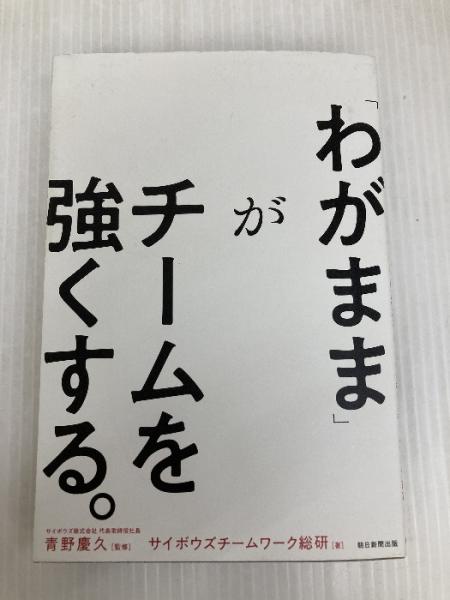 「わがまま」
が
チームを
強くする。
サイボウズ株式会社 代表取締役社長
青野慶久[監修]
サイボウズチームワーク総研[著]
朝日新聞出版